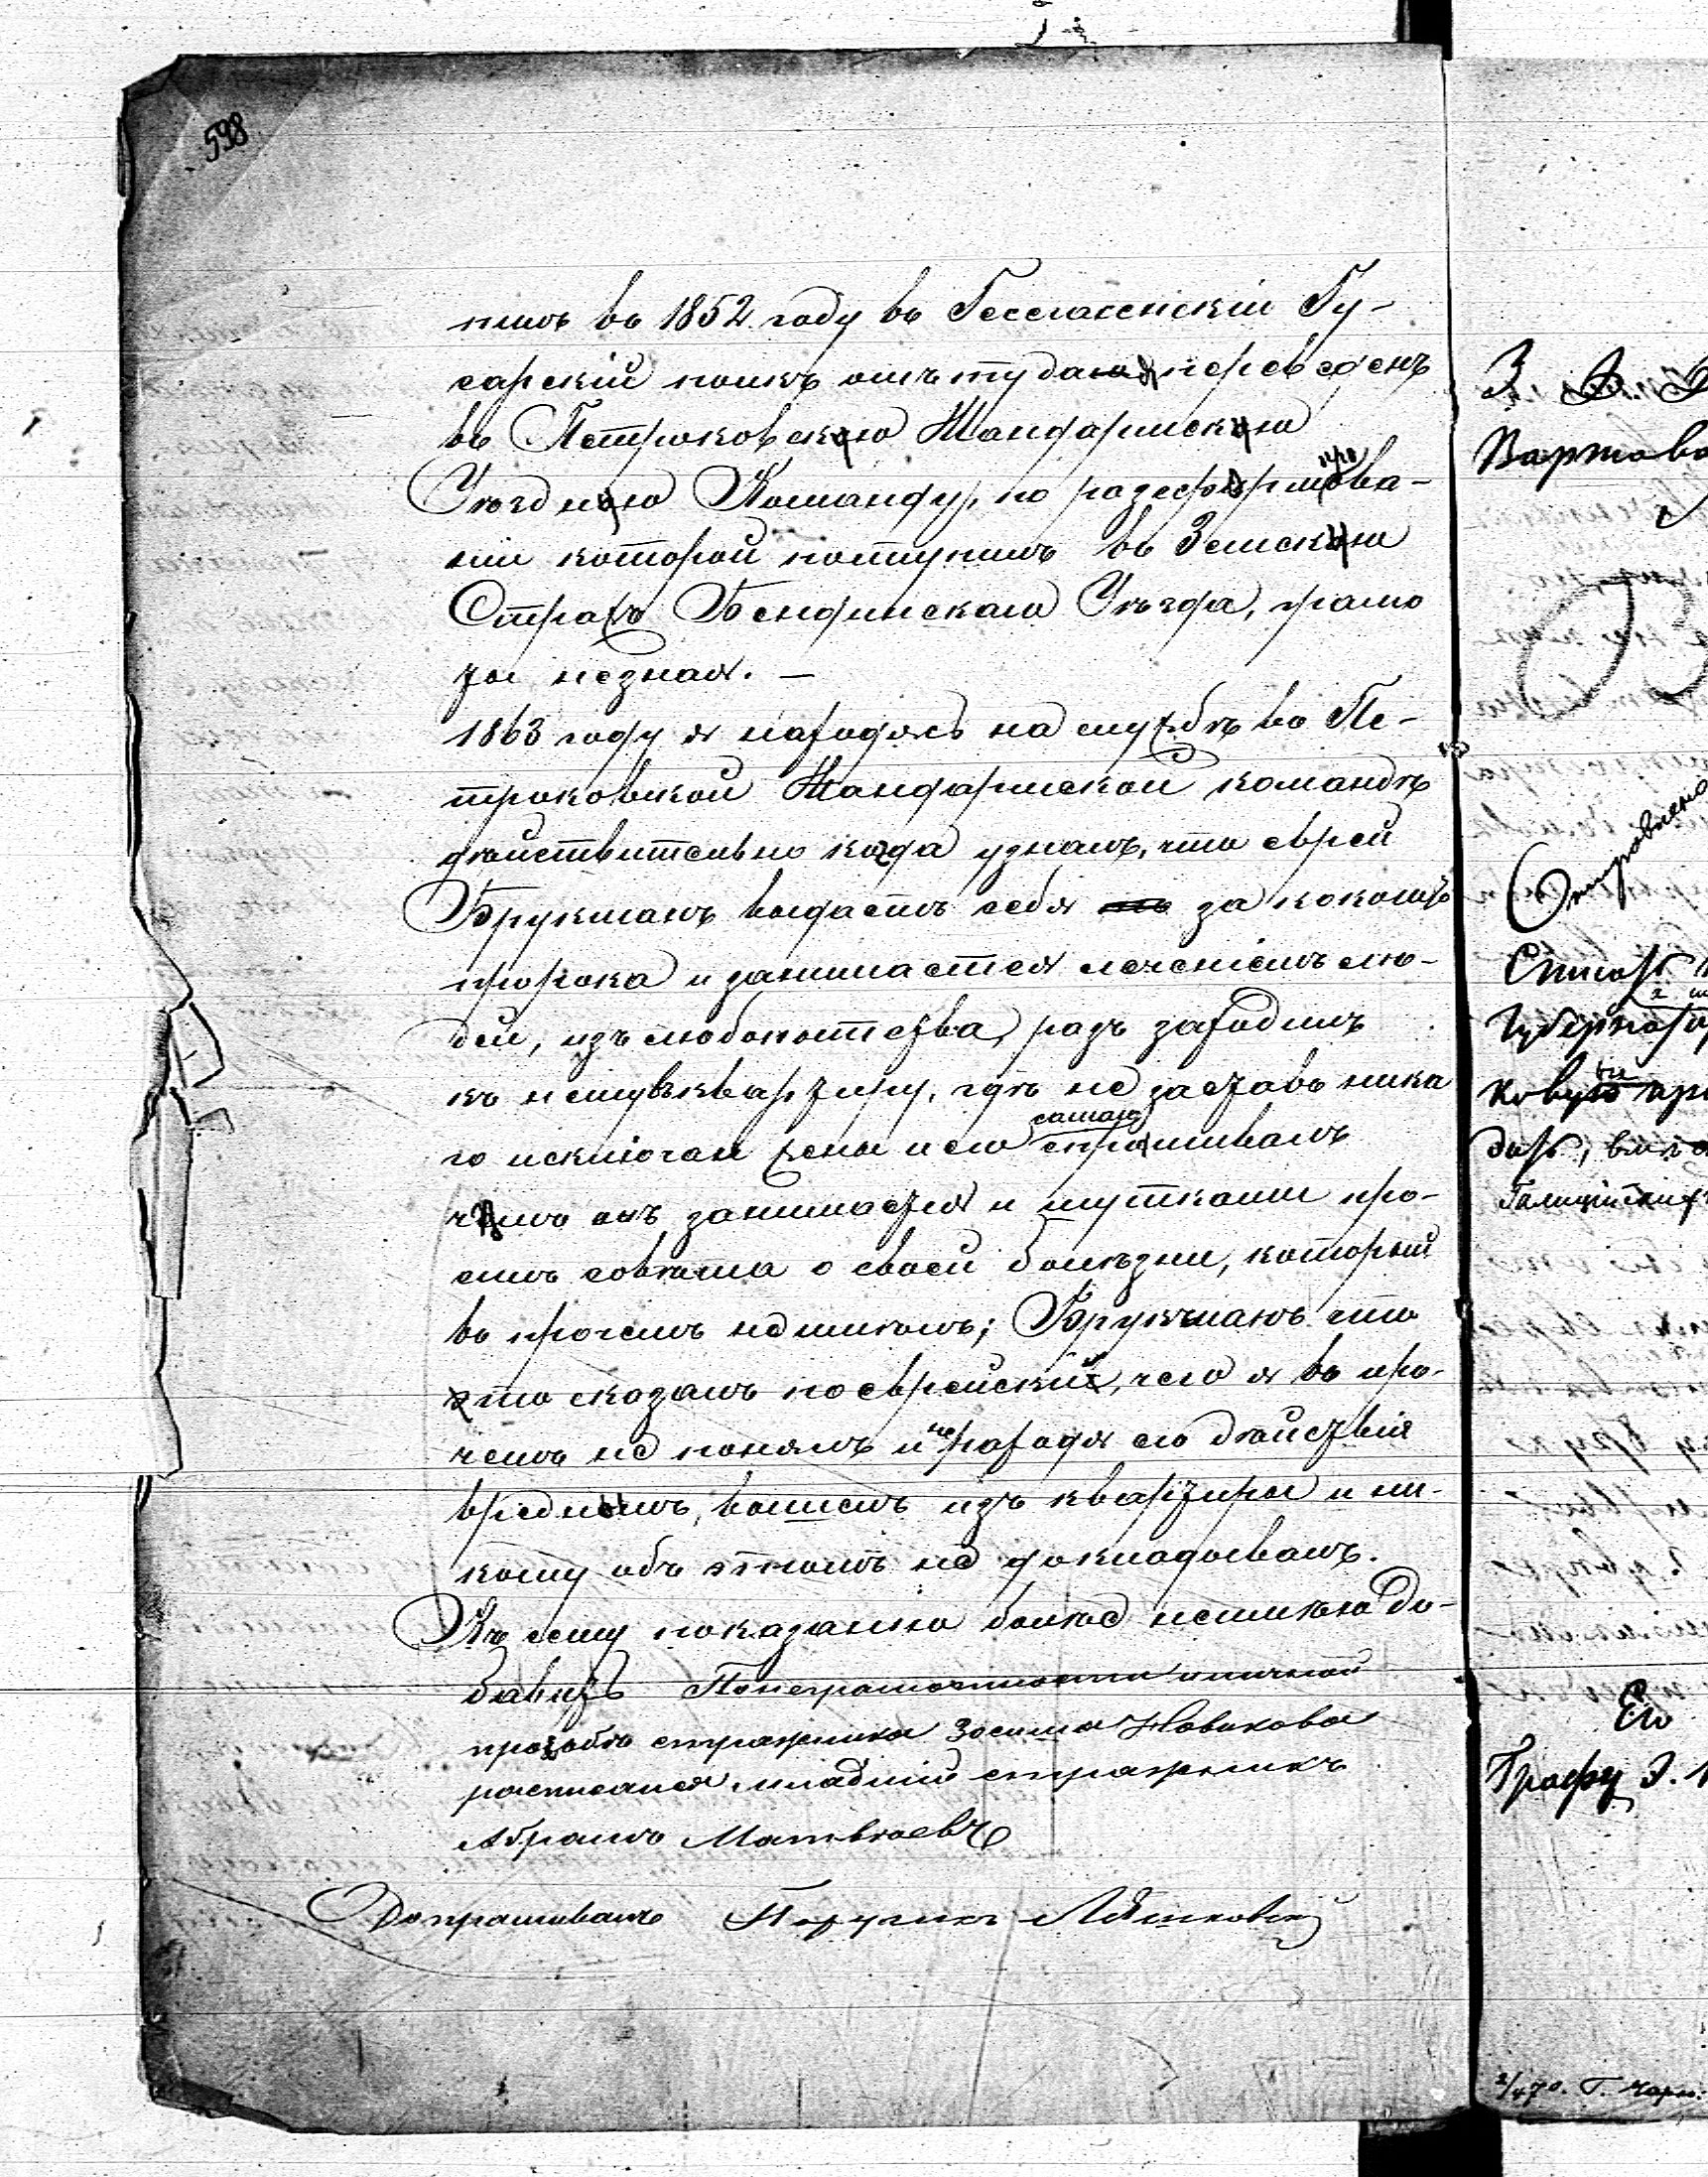 598
пилъ въ 1852 году въ Гессекассельскій Гу-
сарскій полкъ отъ туда переведенъ
въ Петроковскую Жандармскую
Уѣздную Команду, по разсформирова-
ніи которой поступилъ въ Земскую
Стражу Бендинскаго Уѣзда, грамо
ты незнаю. —
1863 году я находясь на службѣ въ Пе-
троковской Жандармской командѣ
дѣйствительно когда узналъ, что еврей
Брукманъ выдаетъ себя за какого то
пророка и занимается леченіемъ лю-
дей, изъ любопытства, разъ заходилъ
къ нему въ квартиру, гдѣ не заставъ нико
го исключая жены и его самаго спрашивалъ
чѣмъ онъ занимается и шутками про-
силъ совѣта о своей болѣзни, которой
въ прочемъ не имѣлъ; Брукманъ что
то сказалъ по еврейски, чего я въ про-
чемъ не понялъ и не находя его дѣйствія
вреднымъ, вышелъ изъ квартиры и ни-
кому объ этомъ не докладывалъ.
Къ сему показанію болѣе неимѣю до-
бавить По неграмотности и личной
прозьбѣ стражника Зосима Новикова
росписался младшій стражникъ
Абрамъ Матвѣевъ
Допрашивалъ Поручикъ
З. Д.
Варшава
Отправлено
Списокъ
Губернатор
ковую
Его
Графу